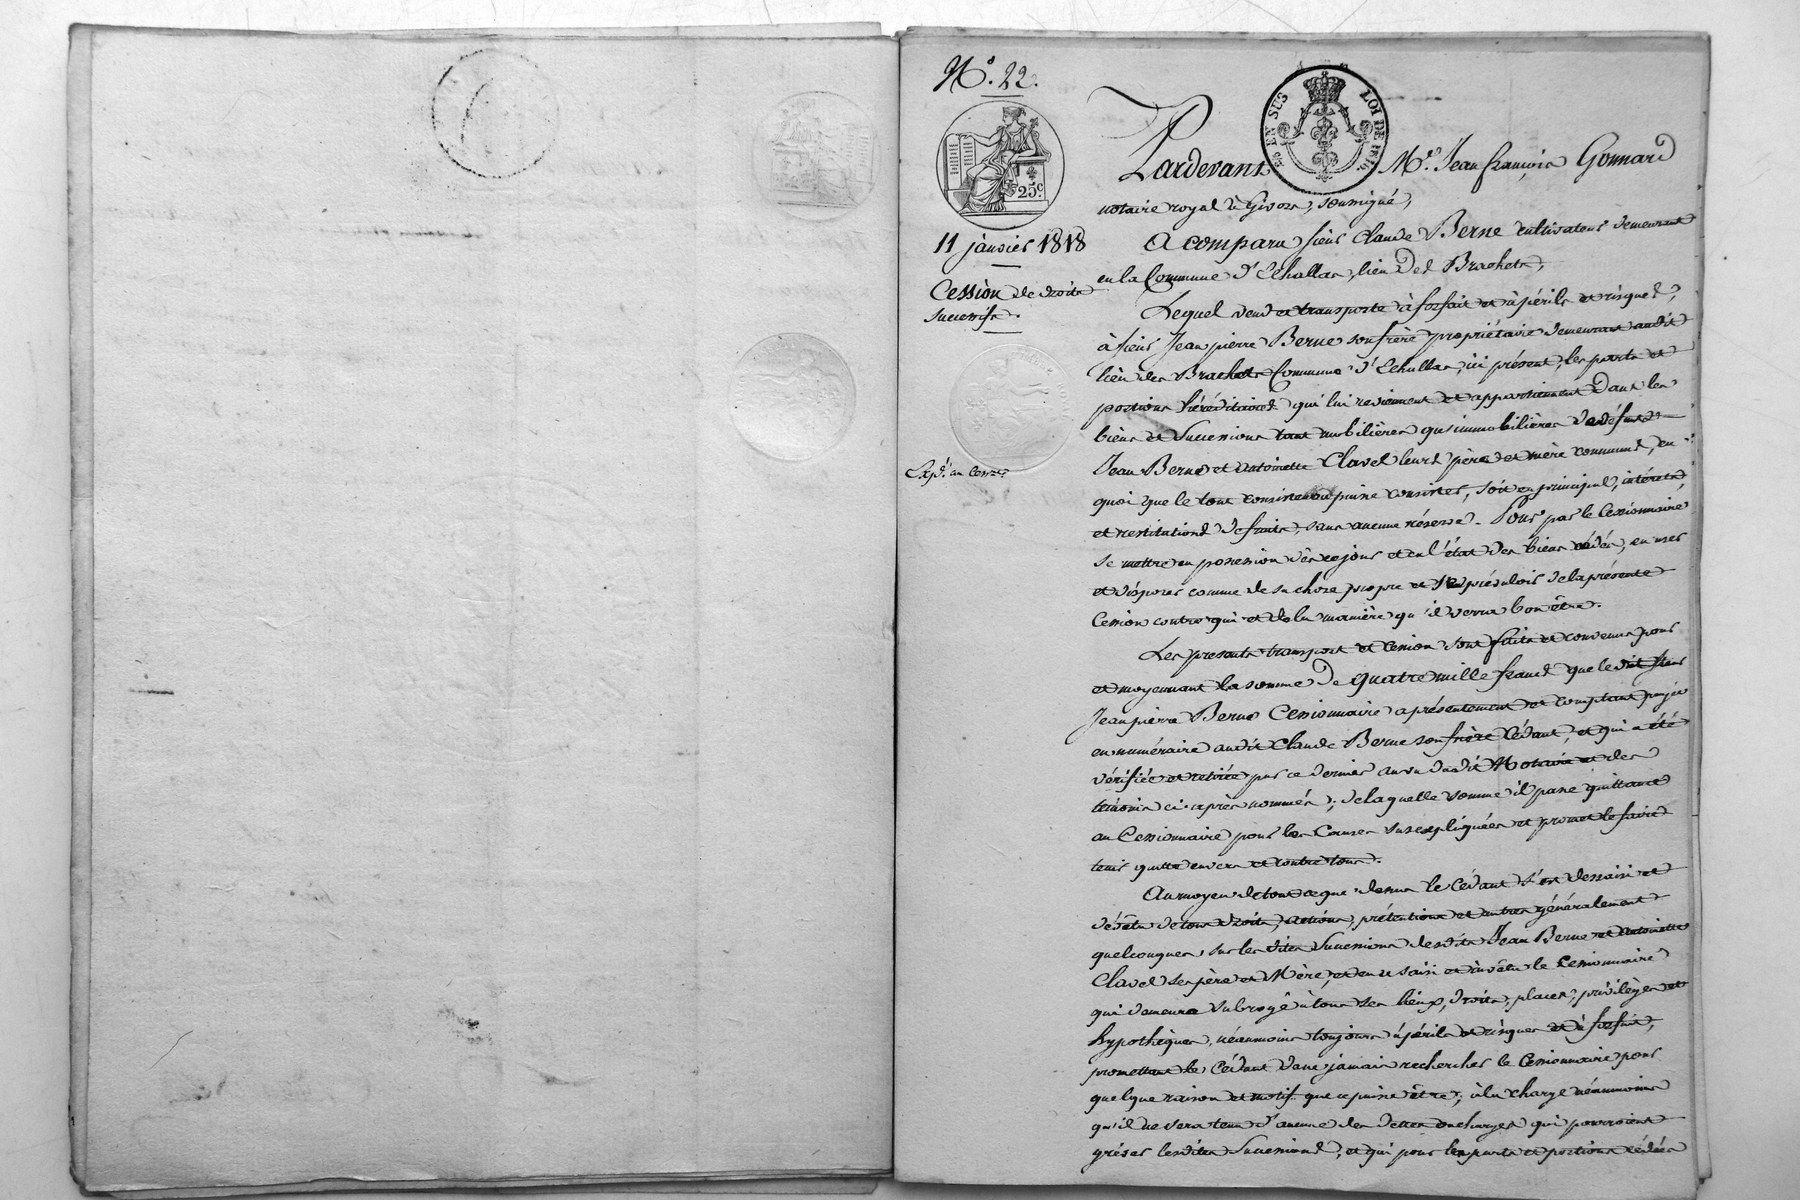 N.º 22.
25.c
11 janvier 1818
Cession de droits
successifs.
Expd. au Cess.re
EN SUS
LOI DE 1816
Pardevant M.e Jean françois Gonnard
notaire royal à Givors, soussigné,
a comparu sieur Claude Berne cultivateur demeurant
en la Commune d'Echallas, lieu des Brachets,
Lequel vend et transporte à forfait et à périls et risques,
à sieur Jean pierre Berne son frère propriétaire demeurant audit
lieu des Brachets Commune d'Echallas, ici présent, les parts et
portions héréditaires qui lui reviennent et appartiennent dans les
biens et Successions tant mobilières qu'immobilières des défunts
Jean Berne et antoinette Clavel leurs père et mère communs, en
quoi que le tout consiste ou puisse consister, soit en principal, intérêts,
et restitutions de fruits, sans aucune réserve. Pour par le Cessionnaire
se mettre en possession dès ce jour et en l'état des biens cédés, en user
et disposer comme de sa chose propre et se prévaloir de la présente
Cession contre qui et de la manière qu'il verra bon être.
Les presents transport et cession sont faits et convenus pour
et moyennant la somme de quatre mille francs que le dit sieur
Jean pierre Berne Cessionnaire a présentement et comptant payée
en numéraire audit Claude Berne son frère Cédant, et qui a été
vérifiée et retirée par ce dernier au vu dudit Notaire et des
témoins ci-après nommés; de laquelle somme il passe quittance
au Cessionnaire pour les Causes susexpliquées et promet le faire
tenir quitte envers et contre tous.
Au moyen de tout ce que dessus le Cédant s'est dessaisi et
dévêtu de tous droits, actions, prétentions et autres généralement
quelconques sur les dites Successions desdits Jean Berne et antoinette
Clavel ses père et Mère, et en a saisi et investu le Cessionnaire
qui demeure subrogé à tous ses lieux, droits, places, privilèges et
hypothèques, néanmoins toujours à périls et risques et à forfait,
promettant le Cédant de ne jamais rechercher le Cessionnaire pour
quelque raison et motif que ce puisse être; à la charge néanmoins
qu'il ne sera tenu d'aucune des dettes ou charges qui pourroient
gréver lesdites Successions, et qui pour les parts et portions cédées